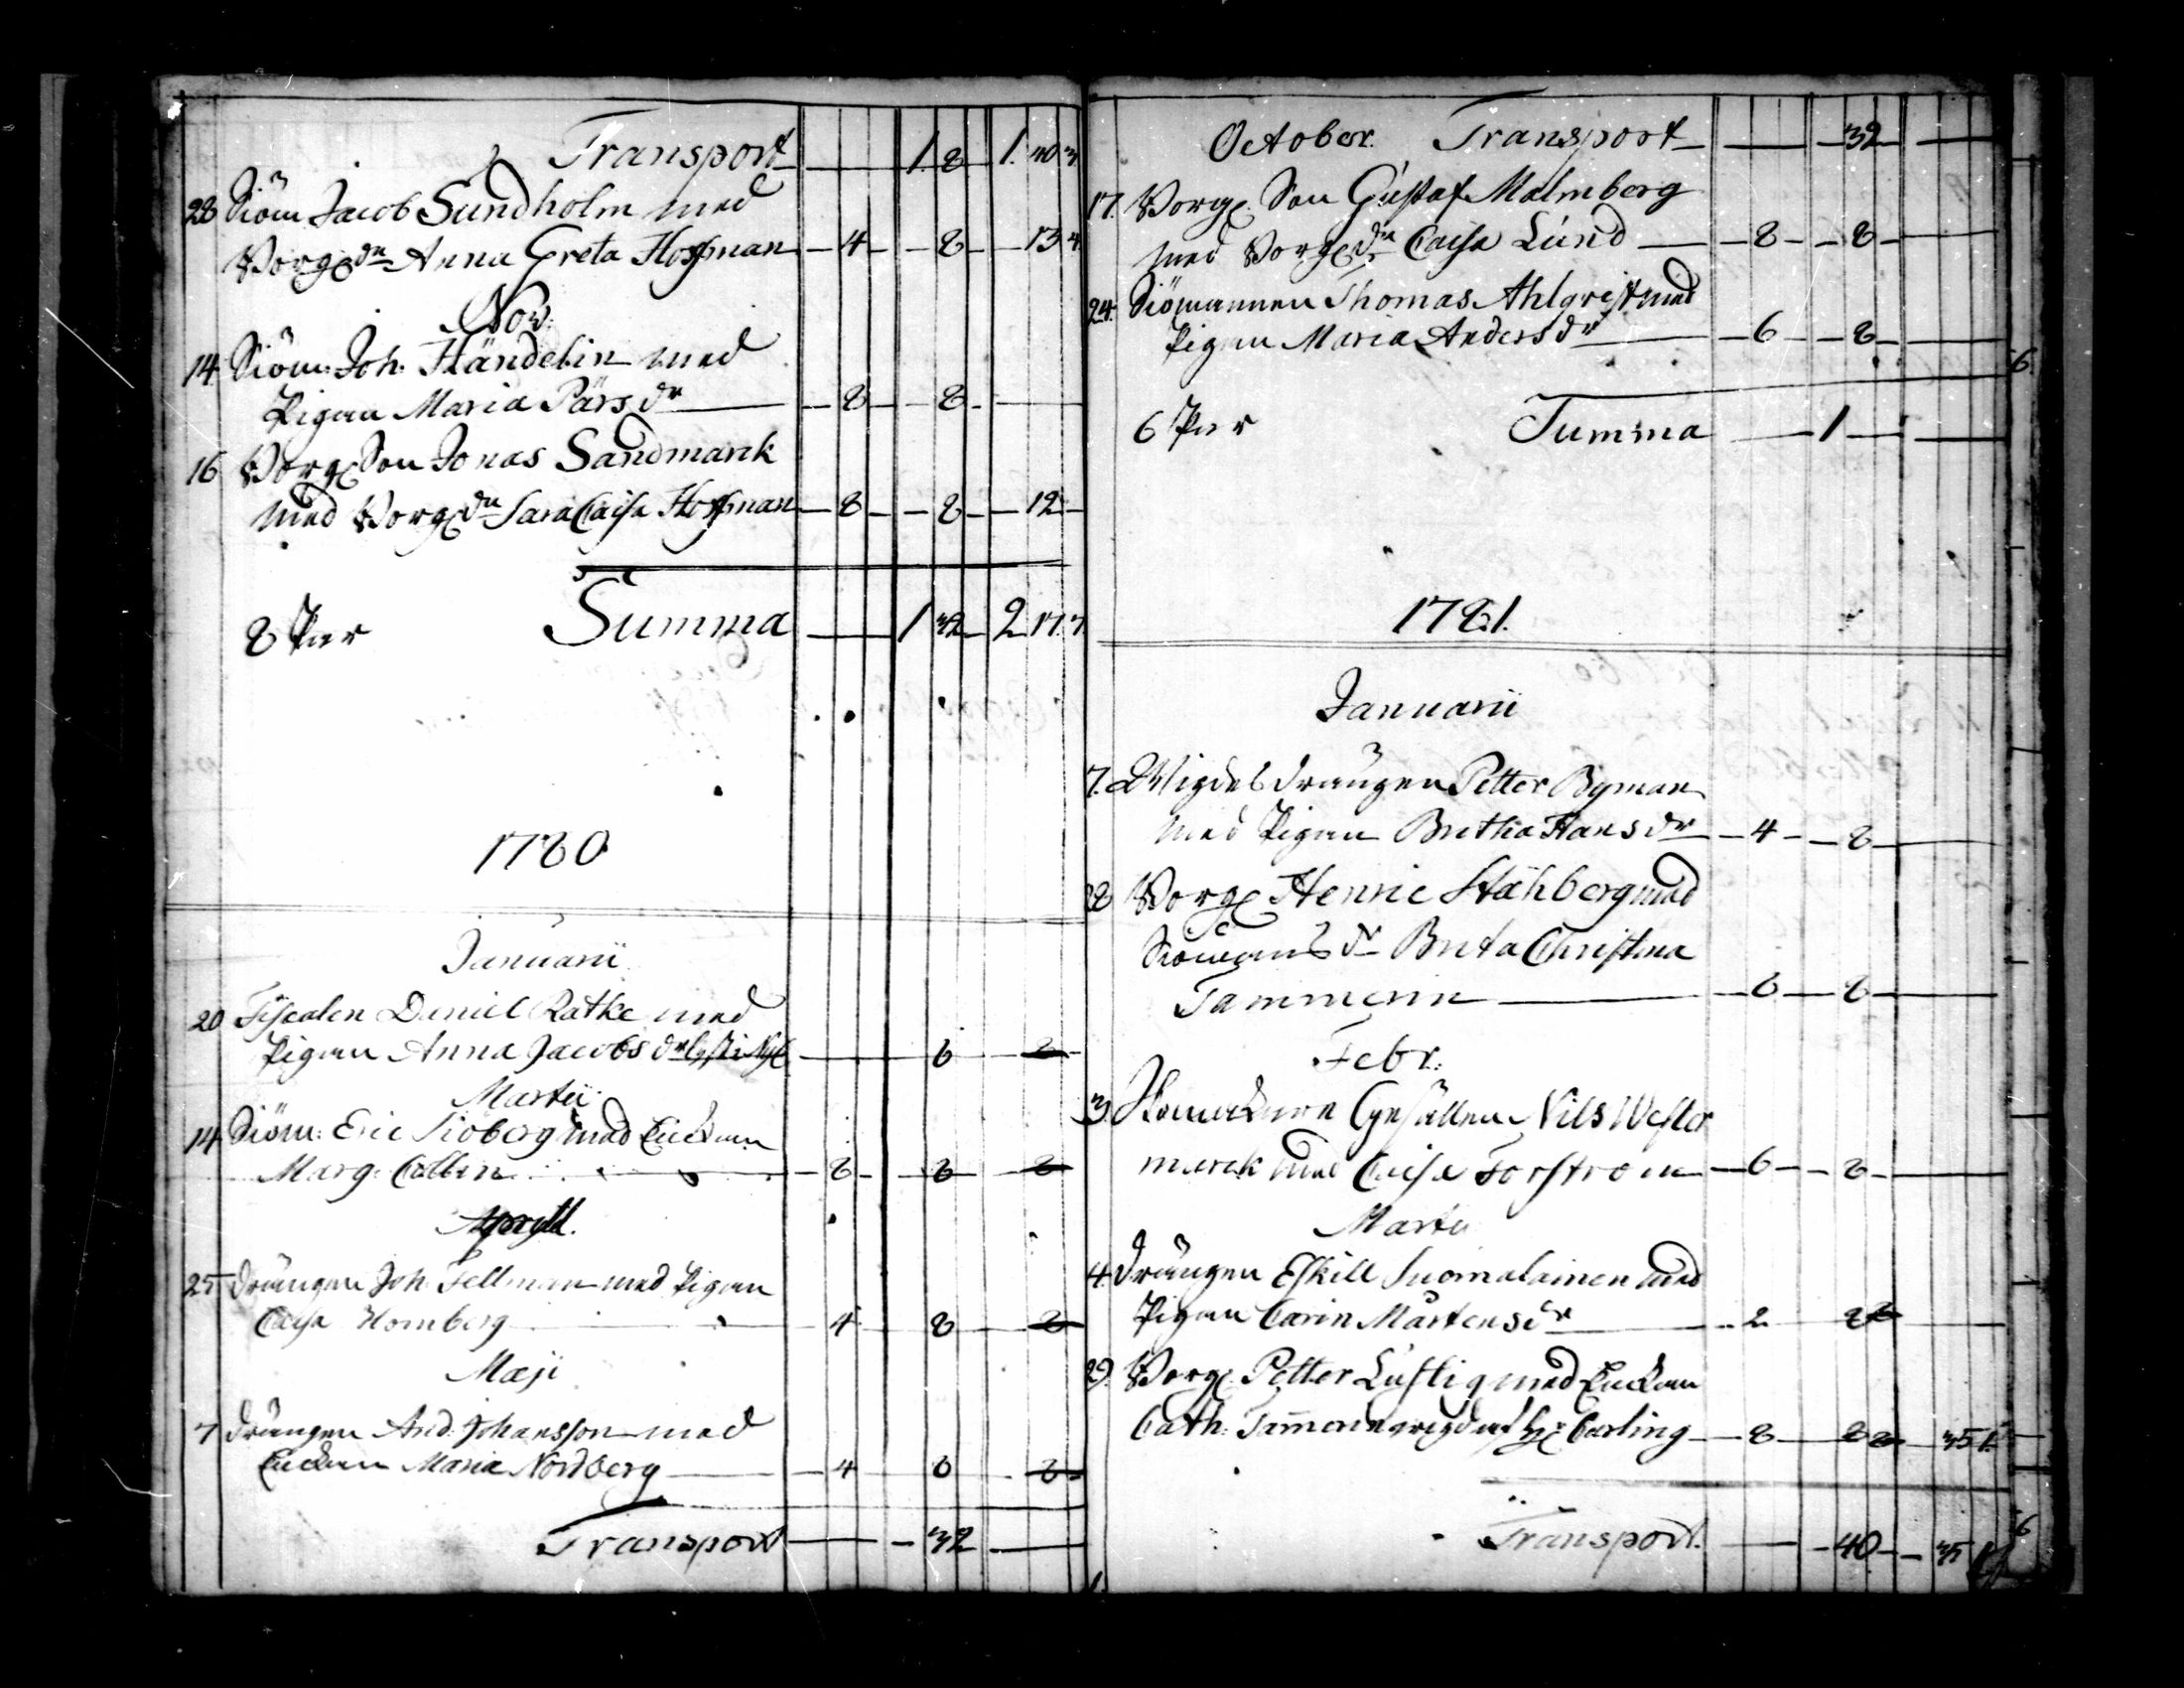 Transport — 1. 8 — 1. 40 3.
28 Siöm Jacob Sundholm med
Borg. dr Anna Greta Hoffman — 4 — 8 — 13 4
Nov:
14 Siöm: Joh. Händelin med
Pigan Maria Pärsdr — 8 — 8 —
16 Borg. Son Jonas Sandmark
med Borg. dr Sara Caisa Hoffman — 8 — 8 — 12 —
8 Par Summa — 1 32 — 2 17. 7.
1780
Januarii
20 Fiscalen Daniel Ratke med
Pigan Anna Jacobsdr — 8 — 8 —
Martii
14 Siöm: Eric Siöberg med Enckan
Marg: Collin — 8 — 8 — 8
Aprill.
25 Drängen Joh. Fellman med Pigan
Caisa Homberg — 4 — 8 — 8
Maji
7 Drängen And. Johansson med
Enckan Maria Nordberg — 4 — 8 — 8 —
Transport — 32 —
October. Transport — 32 —
17. Borg. Son Gustaf Malmberg
med Borg. dr Caisa Lund — 8 — 8 —
24. Siömannen Thomas Ahlqvist med
Pigan Maria Andersdr — 6 — 8 —
6 Par Summa — 1 —
1781.
Januarii
7. Drängen Petter Byman
med Pigan Britha Hansdr — 4 — 8 —
28 Borg. Henric Ståhberg med
Siömans dr Brita Christina
Tammerin — 8 — 8 —
Febr:
3. Gesällen Nils Wester
marck med Caisa Forström — 6 — 8 —
Martii
4. Drängen Eskill Suomalainen med
Pigan Carin Mårtensdr — 2 — 8 —
29. Borg. Petter Lustig med Enckan
Cath: Carling — 8 — 8 — 35 1.
Transport. — 40 — 35